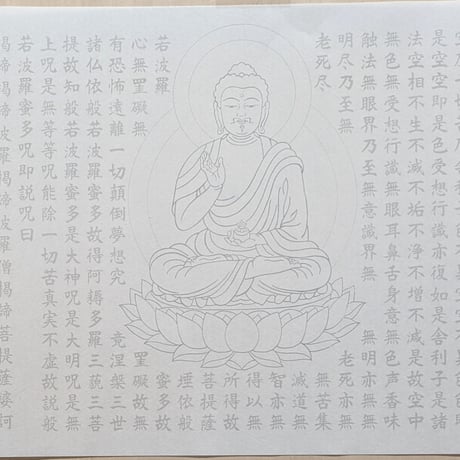 是空空即是色受想行識亦復如是舎利子是諸
法空相不生不滅不垢不浄不増不減是故空中
無色無受想行識無眼耳鼻舌身意無色声香味
触法無眼界乃至無意識界無 無明亦無無
明尽乃至無 老死亦無
老死尽 無苦集
滅道無
智亦無
得以無
所得故
菩提薩
埵依般
若波羅 蜜多故
心無罣礙無 罣礙故無
有恐怖遠離一切顛倒夢想究 竟涅槃三世
諸仏依般若波羅蜜多故得阿耨多羅三藐三菩
提故知般若波羅蜜多是大神呪是大明呪是無
上呪是無等等呪能除一切苦真実不虚故説般
若波羅蜜多呪即説呪曰
羯諦羯諦波羅羯諦波羅僧羯諦菩提薩婆訶